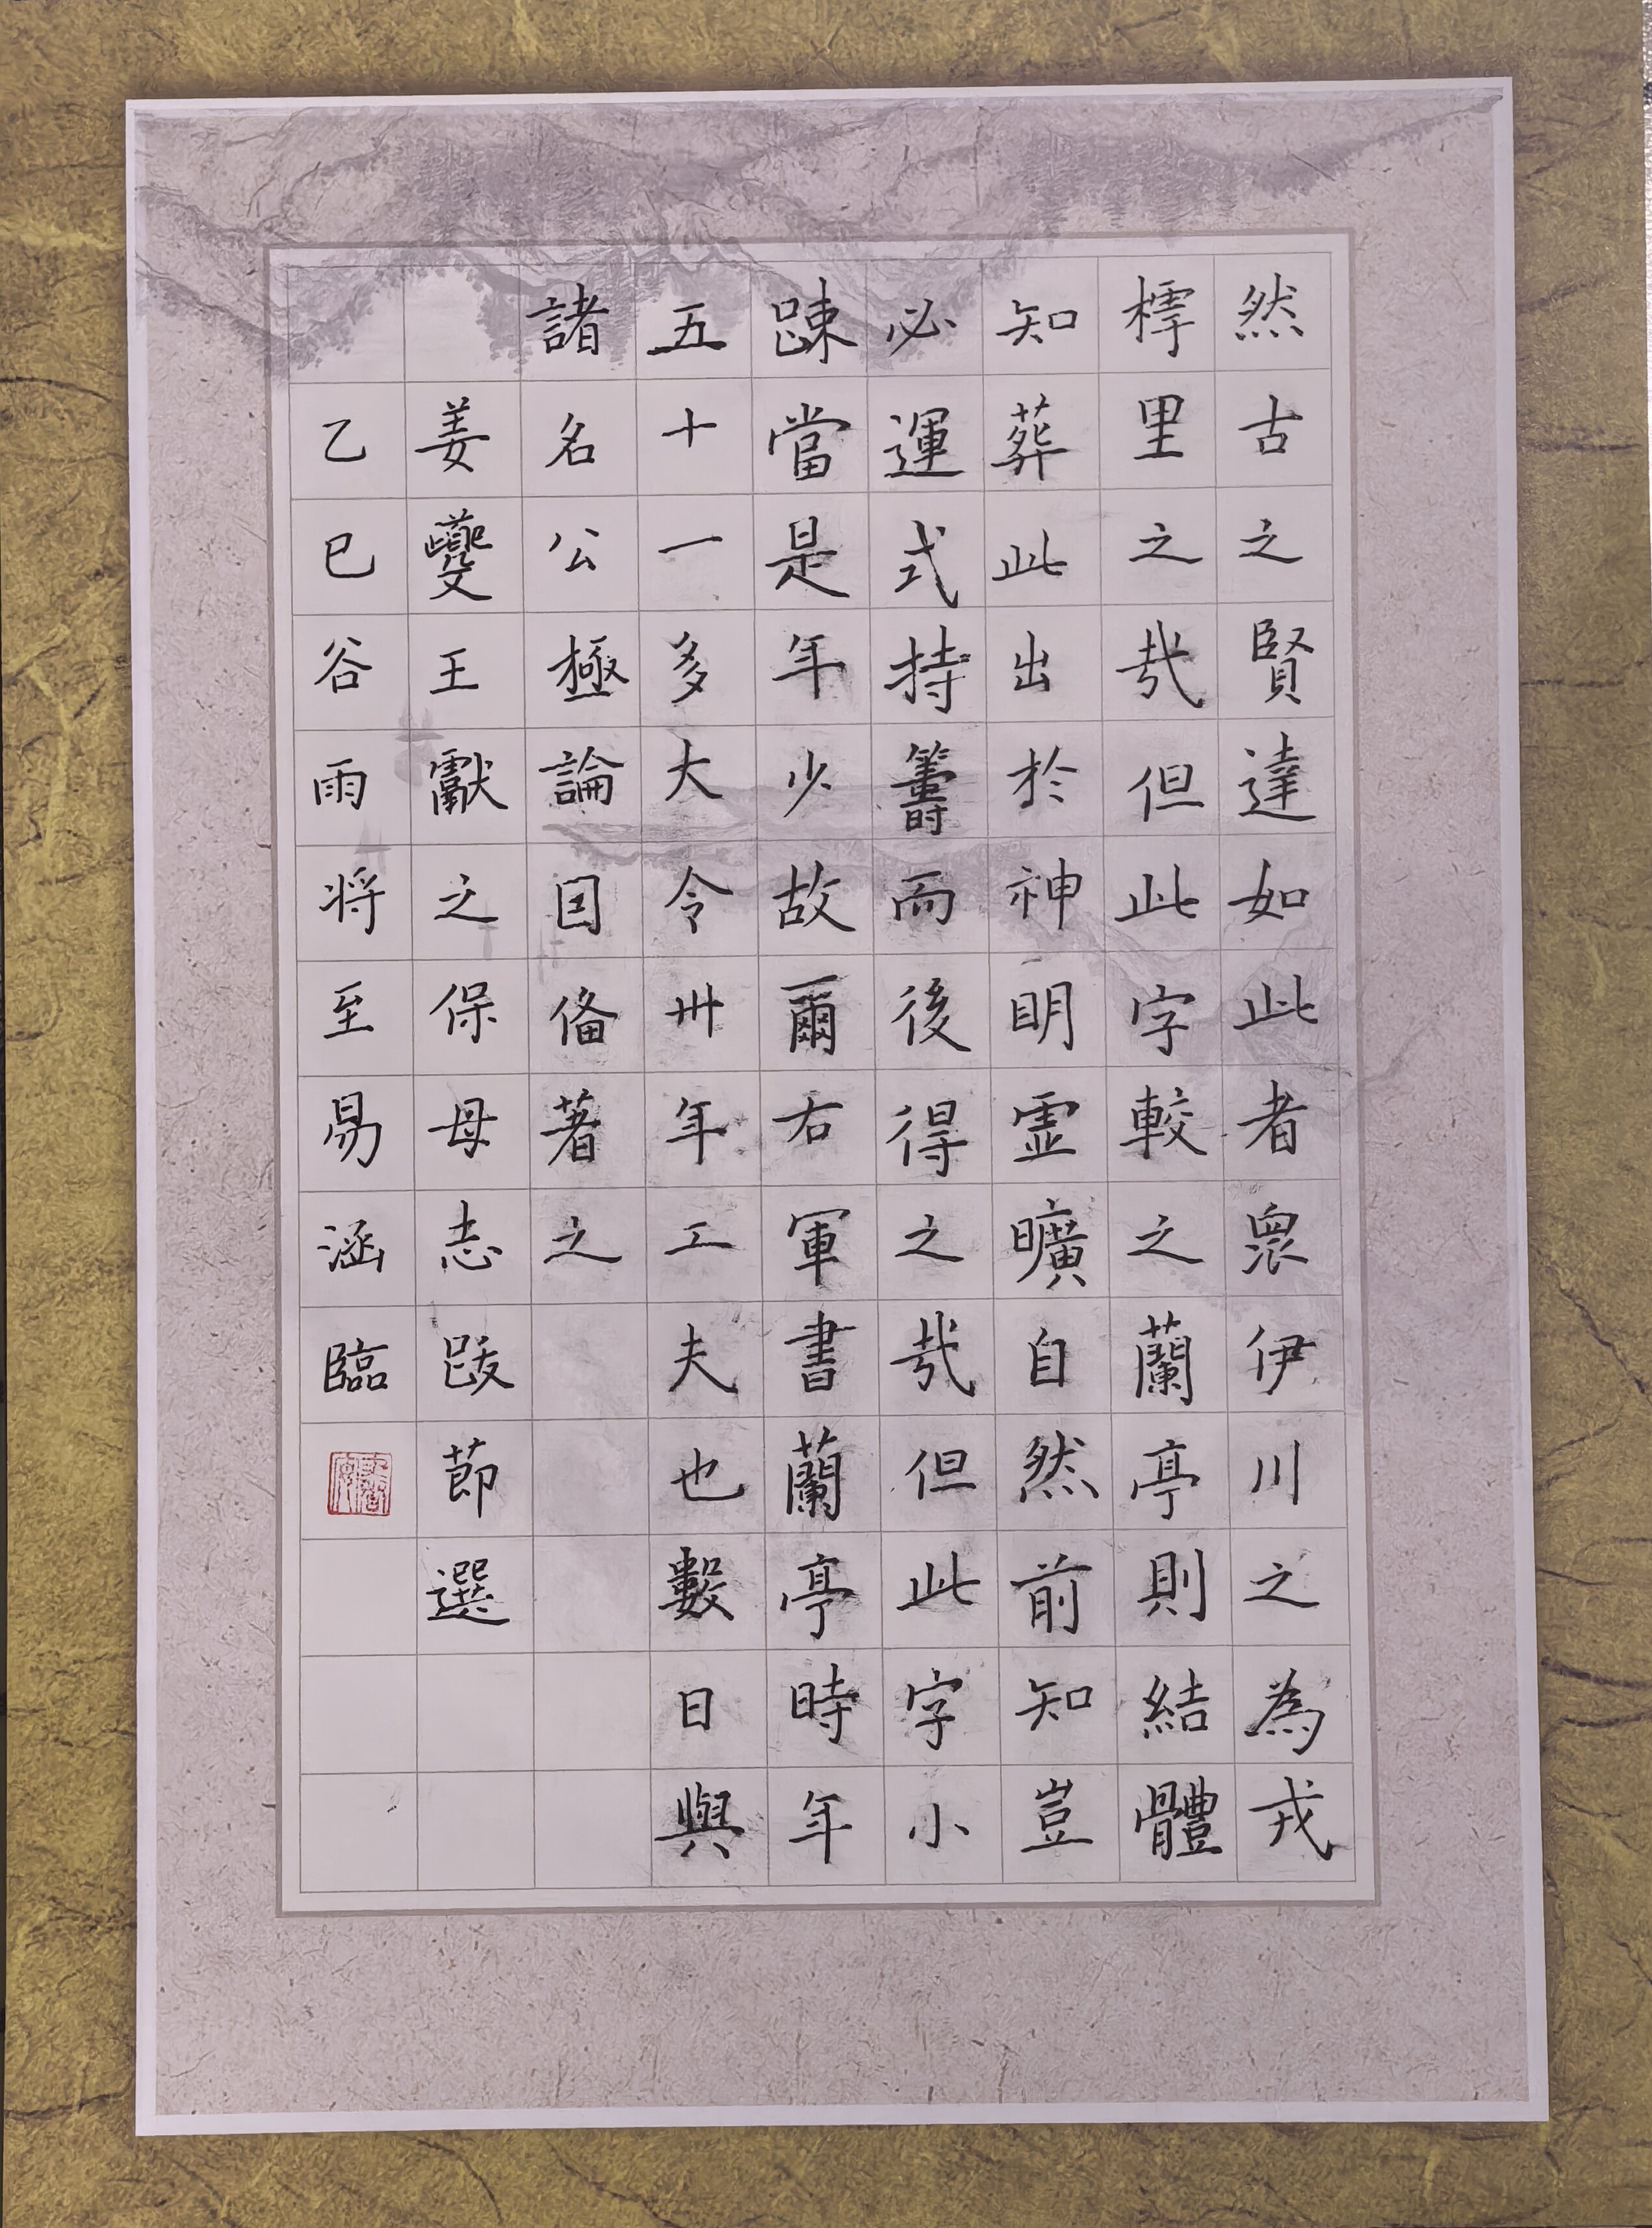 然古之賢達如此者眾伊川之為戎
樗里之㢤但此字較之蘭亭則結體
知葬此出於神明霊曠自然前知豈
必運式持籌而後得之㢤但此字小
踈當是年少故爾右軍書蘭亭時年
五十一多大令卅年工夫也數日與
諸名公極論囙俻著之
姜夔王獻之保母志跋莭選
乙巳谷雨将至易涵臨